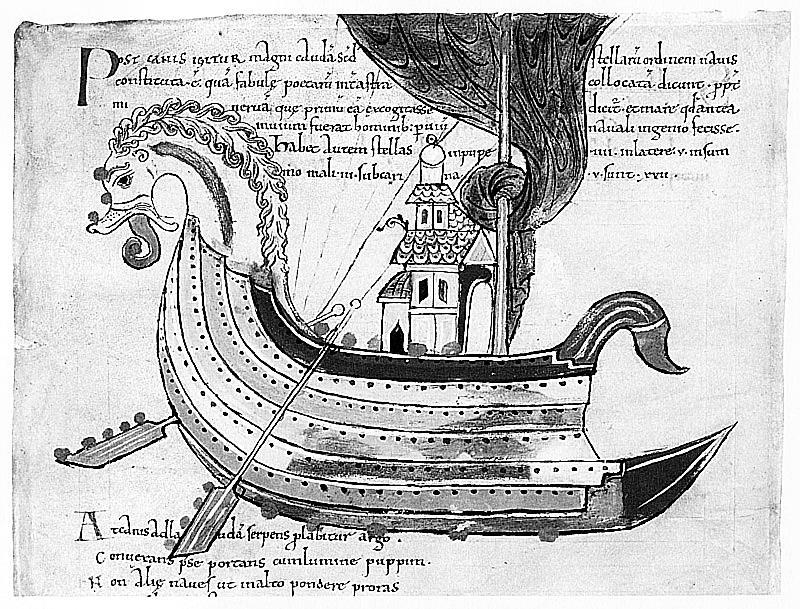 Post canis igitur magni caudā sed stellarū ordinem navis
constituta·ē· quā fabule poetarū int astra collocatā dicunt· ꝓpt̄
mi nerua que primū eā excogitasse dicit̄ et mare qd antea
inuium fuerat hominib; navali ingenio fecisse·
Habet autem stellas in puppe ·iiii· in latere ·v· insum
mo mali ·iii· sub cari na ·v· sunt ·xvii·
At canis ad caudā serpens plabitur argo·
Conversam pse portans cum lumine puppim·
Non alię naves ut in alto pondere proras